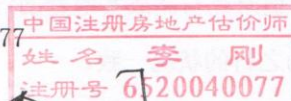 中国注册房地产估价师
77
姓名 李刚
注册号 6520040077